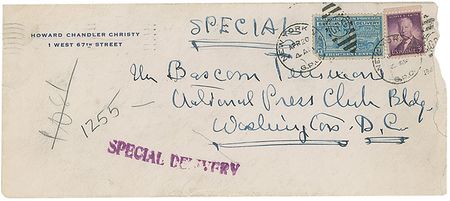 HOWARD CHANDLER CHRISTY
1 WEST 67TH STREET
SPECIAL
NEW YORK
APR 20
G.P.O.
Mr Bascom Timmons
National Press Club Bldg.
Washington, D.C.
1255 -
SPECIAL DELIVERY